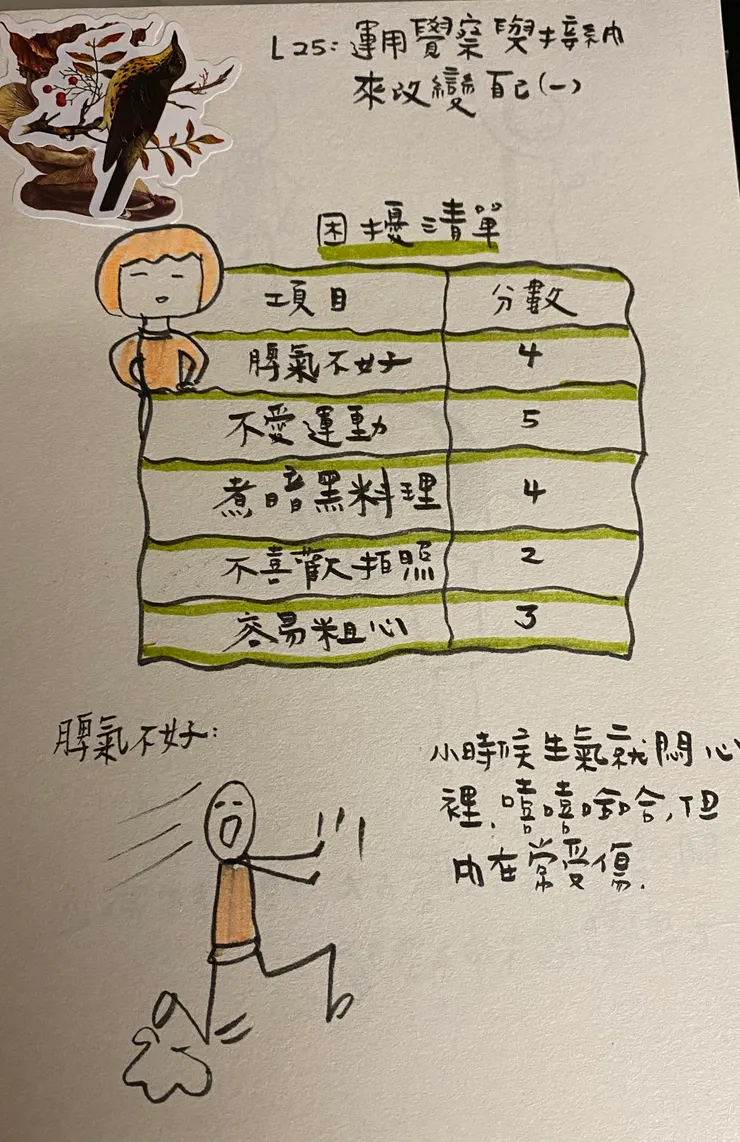 L25: 運用覺察與接納
來改變自己(一)
困擾清單
項目 分數
脾氣不好 4
不愛運動 5
煮暗黑料理 4
不喜歡拍照 2
容易粗心 3
脾氣不好:
小時候生氣就悶心
裡,嘻嘻哈哈,但
內在常受傷.